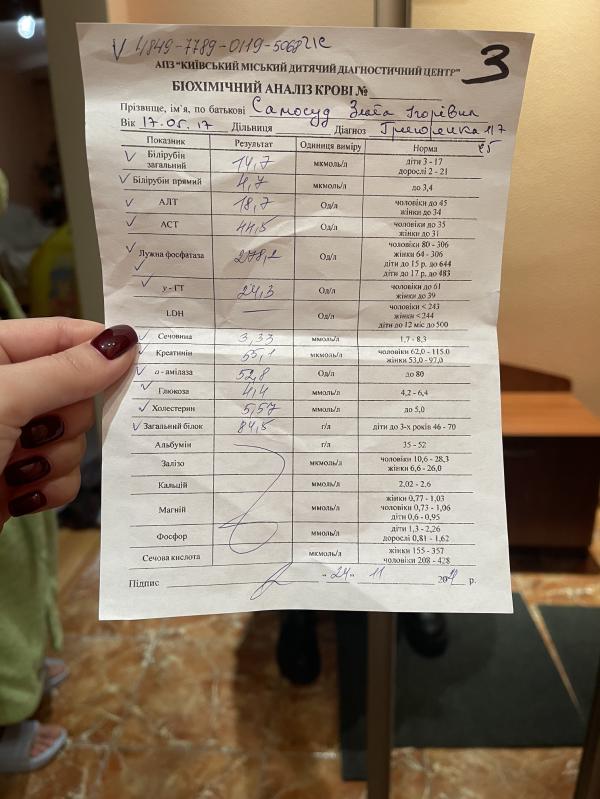 V 4849-7789-0119-5068 21с
3
АПЗ "КИЇВСЬКИЙ МІСЬКИЙ ДИТЯЧИЙ ДІАГНОСТИЧНИЙ ЦЕНТР"
БІОХІМІЧНИЙ АНАЛІЗ КРОВІ №
Прізвище, ім'я, по батькові Самосуд Злата Ігорівна
Вік 17.05.17 Дільниця Діагноз Григоренка 11/7
Показник Результат Одиниця виміру Норма
Білірубін загальний 14,7 мкмоль/л діти 3 - 17 дорослі 2 - 21
Білірубін прямий 4,7 мкмоль/л до 3,4
АЛТ 18,7 Од/л чоловіки до 45 жінки до 34
АСТ 44,5 Од/л чоловіки до 35 жінки до 31
Лужна фосфатаза 278,2 Од/л чоловіки 80 - 306 жінки 64 - 306 діти до 15 р. до 644 діти до 17 р. до 483
γ - ГТ 24,3 Од/л чоловіки до 61 жінки до 39
LDH — Од/л чоловіки < 243 жінки < 244 діти до 12 міс до 500
Сечовина 3,33 ммоль/л 1,7 - 8,3
Креатинін 55,1 мкмоль/л чоловіки 62,0 - 115,0 жінки 53,0 - 97,0
α - амілаза 52,8 Од/л до 80
Глюкоза 4,4 ммоль/л 4,2 - 6,4
Холестерин 5,57 ммоль/л до 5,0
Загальний білок 84,5 г/л діти до 3-х років 46 - 70
Альбумін г/л 35 - 52
Залізо мкмоль/л чоловіки 10,6 - 28,3 жінки 6,6 - 26,0
Кальцій ммоль/л 2,02 - 2.6
Магній ммоль/л жінки 0,77 - 1,03 чоловіки 0,73 - 1,06 діти 0,6 - 0,95
Фосфор ммоль/л діти 1,3 - 2,26 дорослі 0,81 - 1,62
Сечова кислота мкмоль/л жінки 155 - 357 чоловіки 208 - 428
Підпис "24" 11 20 р.